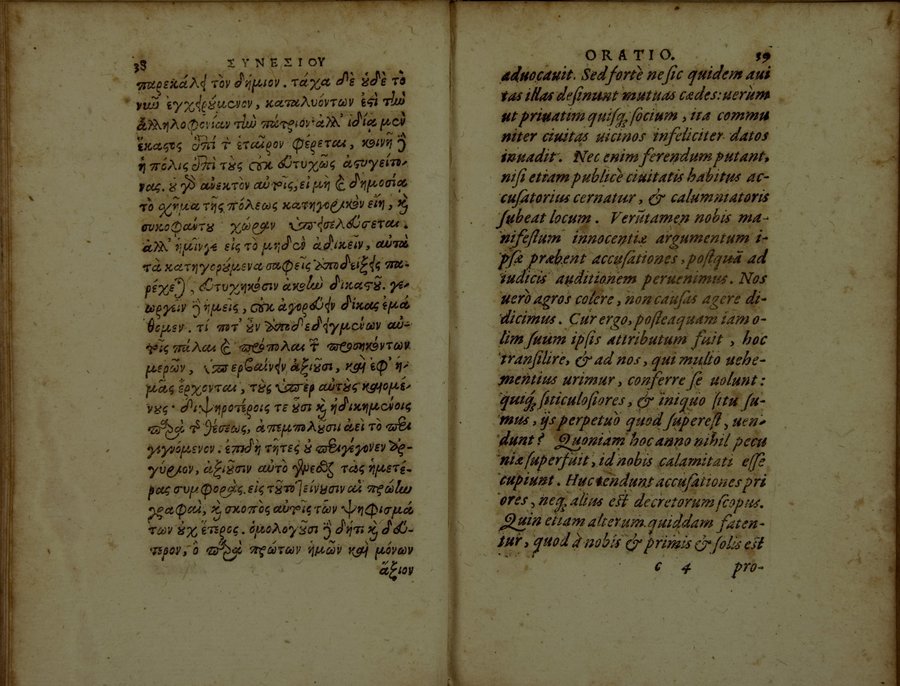 38
ΣΥΝΕΣΙΟΥ
παρεκάλει τὸν δήμιον. τάχα δὲ οὐδὲ τὸ
νιοῦ ἐγχειρούμενον, καταλυόντων ἐστὶ τὴν
ἀλληλοφονίαν τὴν πάτριον· ἀλλ' ἰδίᾳ μὲν
ἕκαστος ἐπὶ τὸν ἑταῖρον φέρεται, κοινῇ δὲ
ἡ πόλις ἐπὶ τοὺς οὐκ εὐτυχῶς ἀστυγείτο
νας. οὐ γὰρ ἀνεκτὸν αὐτοῖς, εἰ μὴ καὶ δημοσίᾳ
τὸ σχῆμα τῆς πόλεως κατηγορικὸν εἴη, καὶ
συκοφάντου χώραν ὑπεισελεύσεται.
ἀλλ' ἡμῖν γε εἰς τὸ μηδὲν ἀδικεῖν, αὐτὰ
τὰ κατηγορούμενα σαφεῖς ἀποδείξεις πα-
ρέχεται, εὐτυχήκοσιν ἀκοὴν δικαστοῦ. γε-
ωργεῖν δὲ ἡμεῖς, οὐκ ἀγορεύειν δίκας ἐμά
θομεν. τί ποτ' οὖν ἀποδεδειγμένων αὐ-
τοῖς πάλαι καὶ πρόπαλαι τῶν προσηκόντων
μερῶν, ὑπερβαίνειν ἀξιοῦσι, καὶ ἐφ' ἡ-
μᾶς ἔρχονται, τοὺς ὑπὲρ αὐτοὺς καιομέ-
νους· διψηροτέροις τε οὖσι καὶ ἠδικημένοις
παρὰ τῆς θέσεως, ἀπεμπολοῦσι ἀεὶ τὸ περι
γιγνόμενον. ἐπειδὴ τῆτες οὐ περιγέγονεν ἀρ-
γύριον, ἀξιοῦσιν αὐτὸ γενέσθαι τὰς ἡμετέ-
ρας συμφοράς. εἰς τοῦτο τείνουσιν αἱ πρῶται
γραφαί, καὶ σκοπὸς αὐτοῖς τῶν ψηφισμά
των οὐχ ἕτερος. ὁμολογοῦσι δὲ δήτι καὶ δεύ-
τερον, ὁ παρὰ πρώτων ἡμῶν καὶ μόνων
ἄξιον
ORATIO.
39
aduocauit. Sed fortè ne sic quidem aui
tas illas desinunt mutuas cædes: uerùm
ut priuatim quisq; socium, ita commu
niter ciuitas uicinos infeliciter datos
inuadit. Nec enim ferendum putant,
nisi etiam publicè ciuitatis habitus ac-
cusatorius cernatur, & calumniatoris
subeat locum. Verũtamen nobis ma-
nifestum innocentiæ argumentum i-
psæ præbent accusationes, postquã ad
iudicis auditionem peruenimus. Nos
uerò agros colere, non causas agere di-
dicimus. Cur ergo, posteaquam iam o-
lim suum ipsis attributum fuit, hoc
transilire, & ad nos, qui multo uehe-
mentius urimur, conferre se uolunt:
quiq; siticulosiores, & iniquo situ su-
mus, ijs perpetuò quod superest, uen-
dunt? Quoniam hoc anno nihil pecu
niæ superfuit, id nobis calamitati esse
cupiunt. Huc tendunt accusationes pri
ores, neq; alius est decretorum scopus.
Quin etiam alterum quiddam faten-
tur, quod à nobis & primis & solis est
c 4
pro-